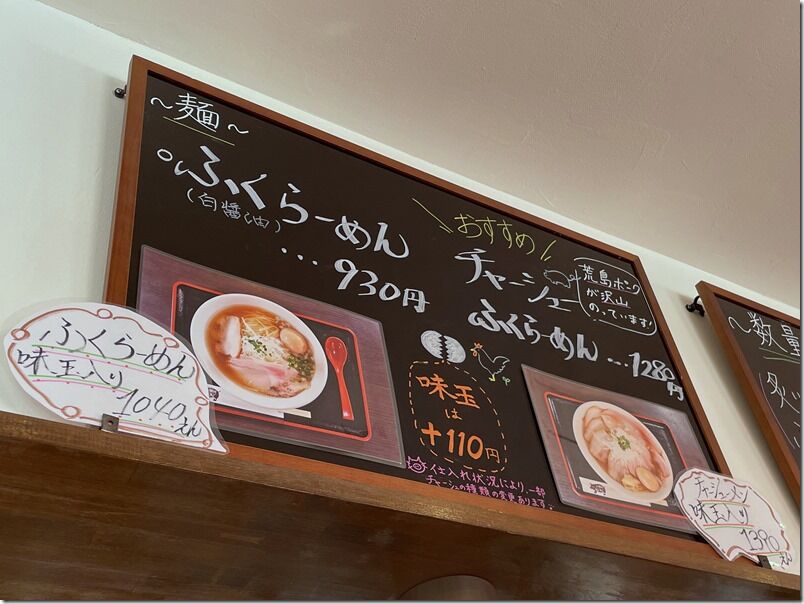 ～麺～
ふくらーめん
(白醤油)
…930円
おすすめ!
チャーシュー
ふくらーめん…1280円
荒島ポーク
が沢山
のっています!
味玉
は
+110円
仕入れ状況により、一部
チャーシューの種類の変更あります。
ふくらーめん
味玉入り
1040えん
チャーシューメン
味玉入り
1390えん
～数量